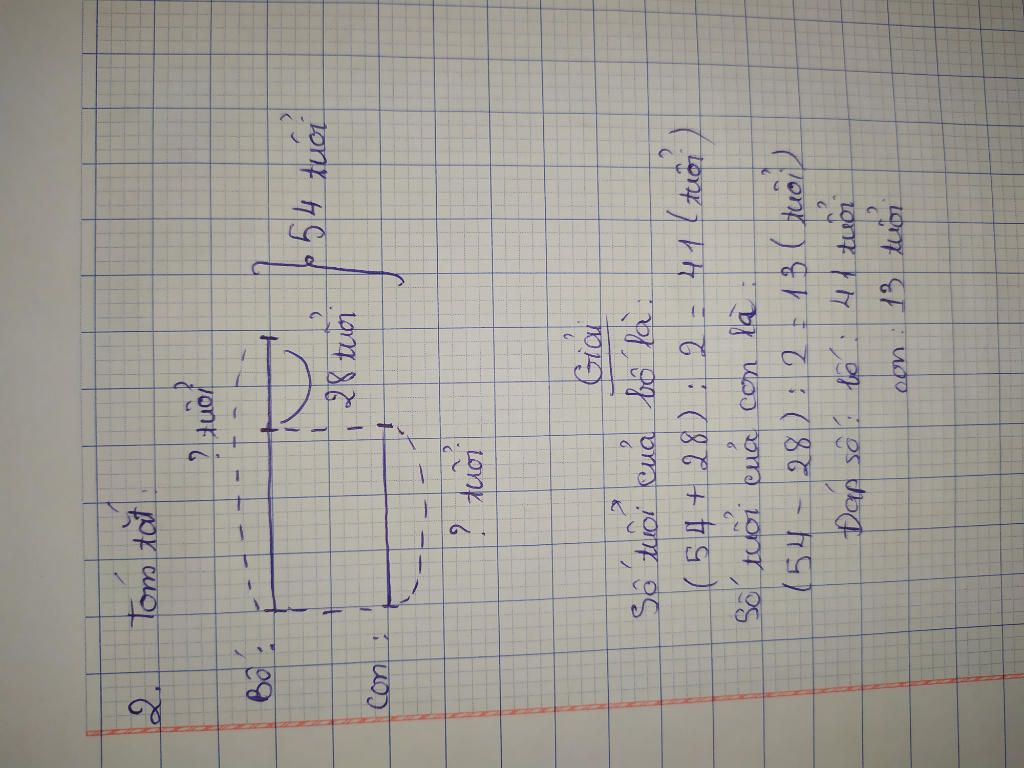 2. Tóm tắt:
? tuổi
Bố:
28 tuổi
54 tuổi
Con:
? tuổi
Giải
Số tuổi của bố là:
(54 + 28) : 2 = 41 (tuổi)
Số tuổi của con là:
(54 - 28) : 2 = 13 (tuổi)
Đáp số: bố: 41 tuổi
con: 13 tuổi